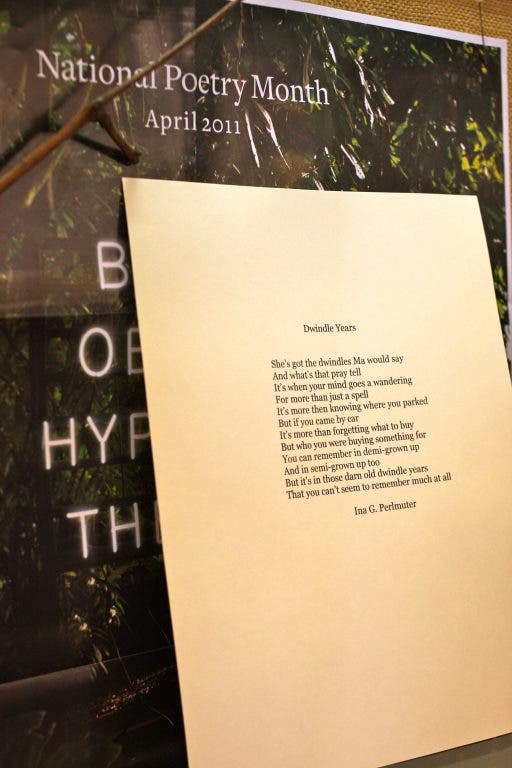 National Poetry Month
April 2011
B
OE
HYP
THE
Dwindle Years
She's got the dwindles Ma would say
And what's that pray tell
It's when your mind goes a wandering
For more than just a spell
It's more then knowing where you parked
But if you came by car
It's more than forgetting what to buy
But who you were buying something for
You can remember in demi-grown up
And in semi-grown up too
But it's in those darn old dwindle years
That you can't seem to remember much at all
Ina G. Perlmuter